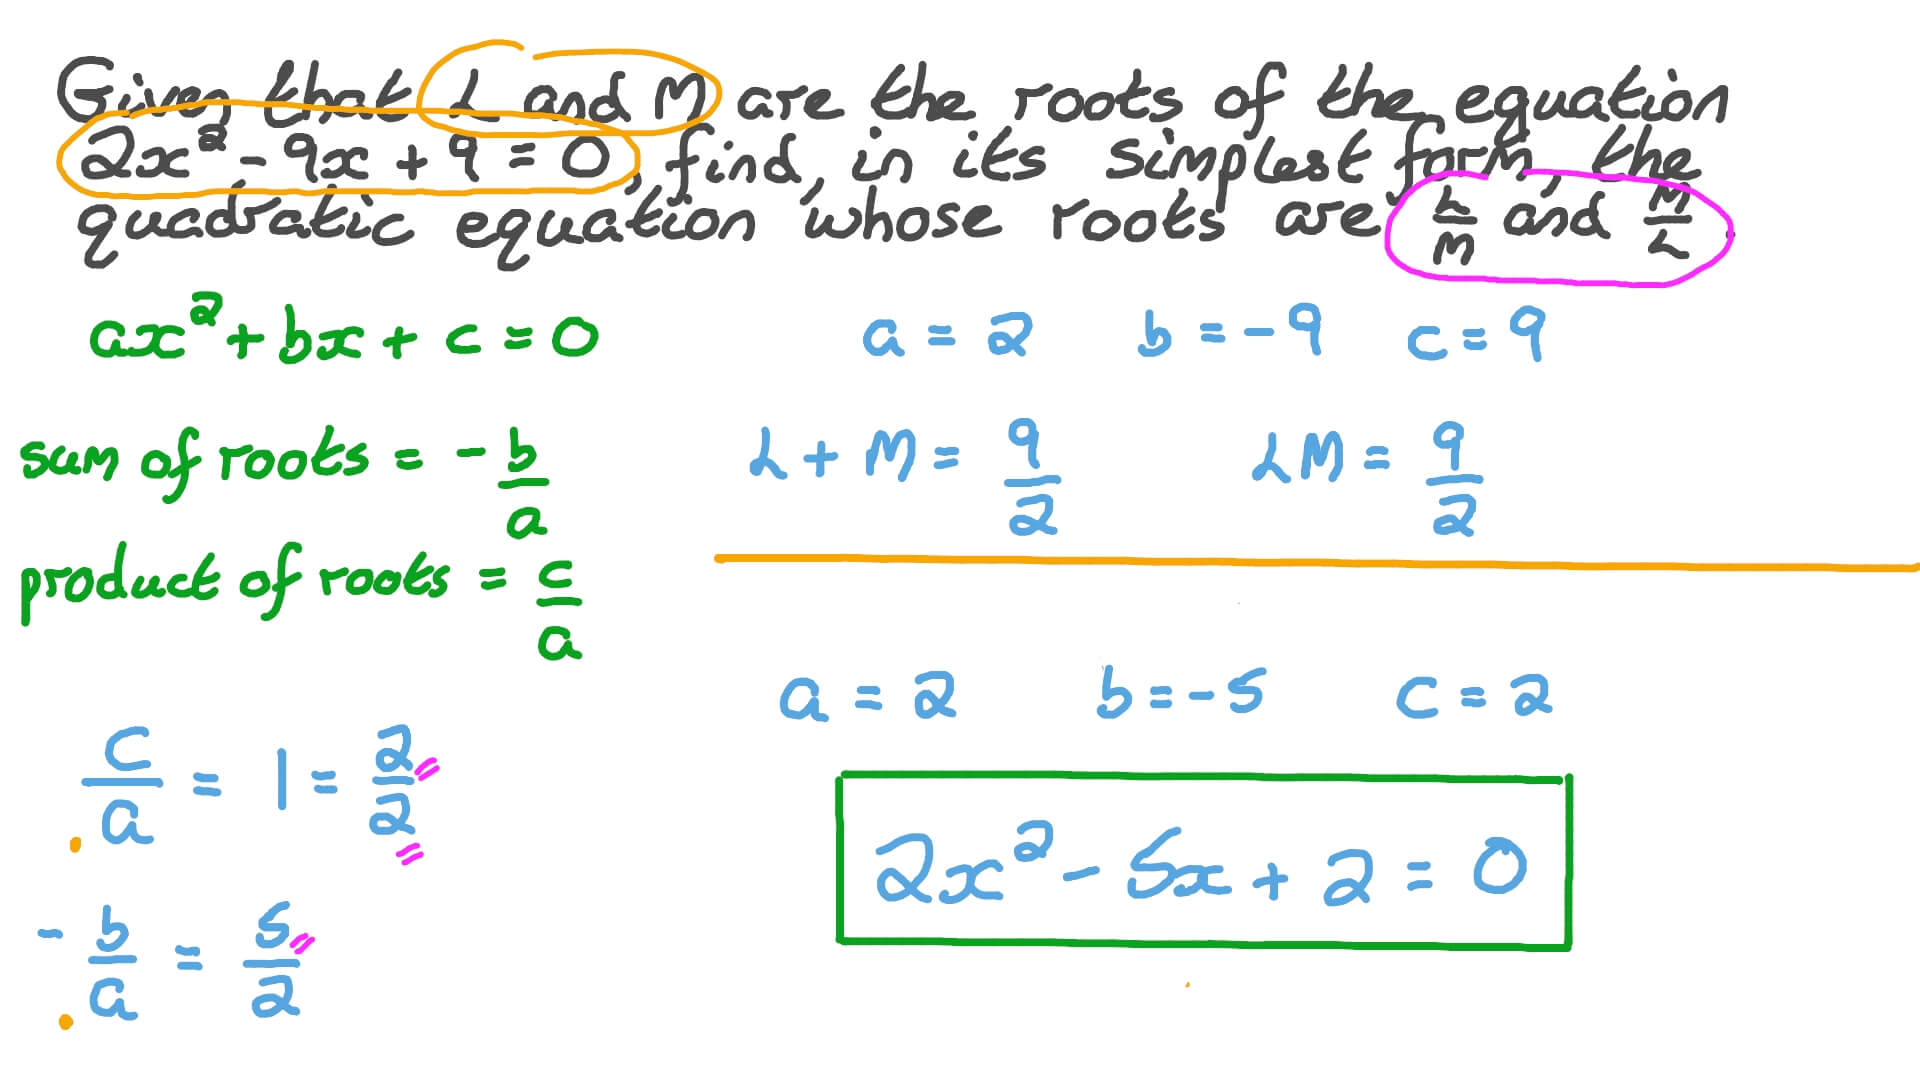 Given that L and M are the roots of the equation
2x² - 9x + 9 = 0, find, in its simplest form, the
quadratic equation whose roots are L/M and M/L.
ax² + bx + c = 0
a = 2 b = -9 c = 9
sum of roots = -b/a
L + M = 9/2 LM = 9/2
product of roots = c/a
a = 2 b = -5 c = 2
c/a = 1 = 2/2
2x² - 5x + 2 = 0
-b/a = 5/2